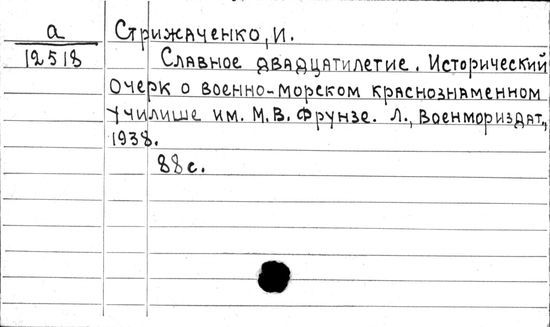 а
12518
Стрижаченко, И.
Славное двадцатилетие. Исторический
очерк о военно-морском краснознаменном
училише им. М.В. Фрунзе. Л., Военмориздат,
1938.
88 с.